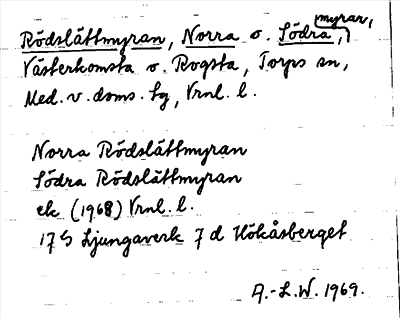 Rödslåttmyran, Norra o. Södra myrar,
Västerkomsta o. Rogsta, Torps sn,
Med. v. doms. Lg, Vrnl. l.
Norra Rödslåttmyran
Södra Rödslåttmyran
ek (1968) Vrnl. l.
17 G Ljungaverk 7 d Hökåsberget
A.-L.W. 1969.